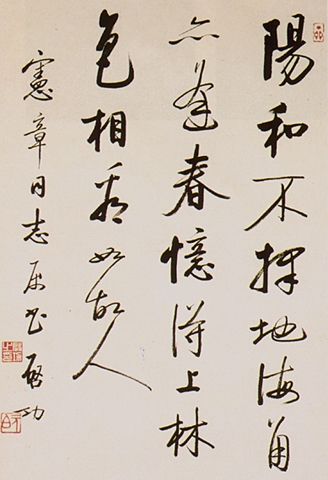 陽和不擇地海角
亦逢春憶得上林
色相看如故人
憲章同志属書 啓功